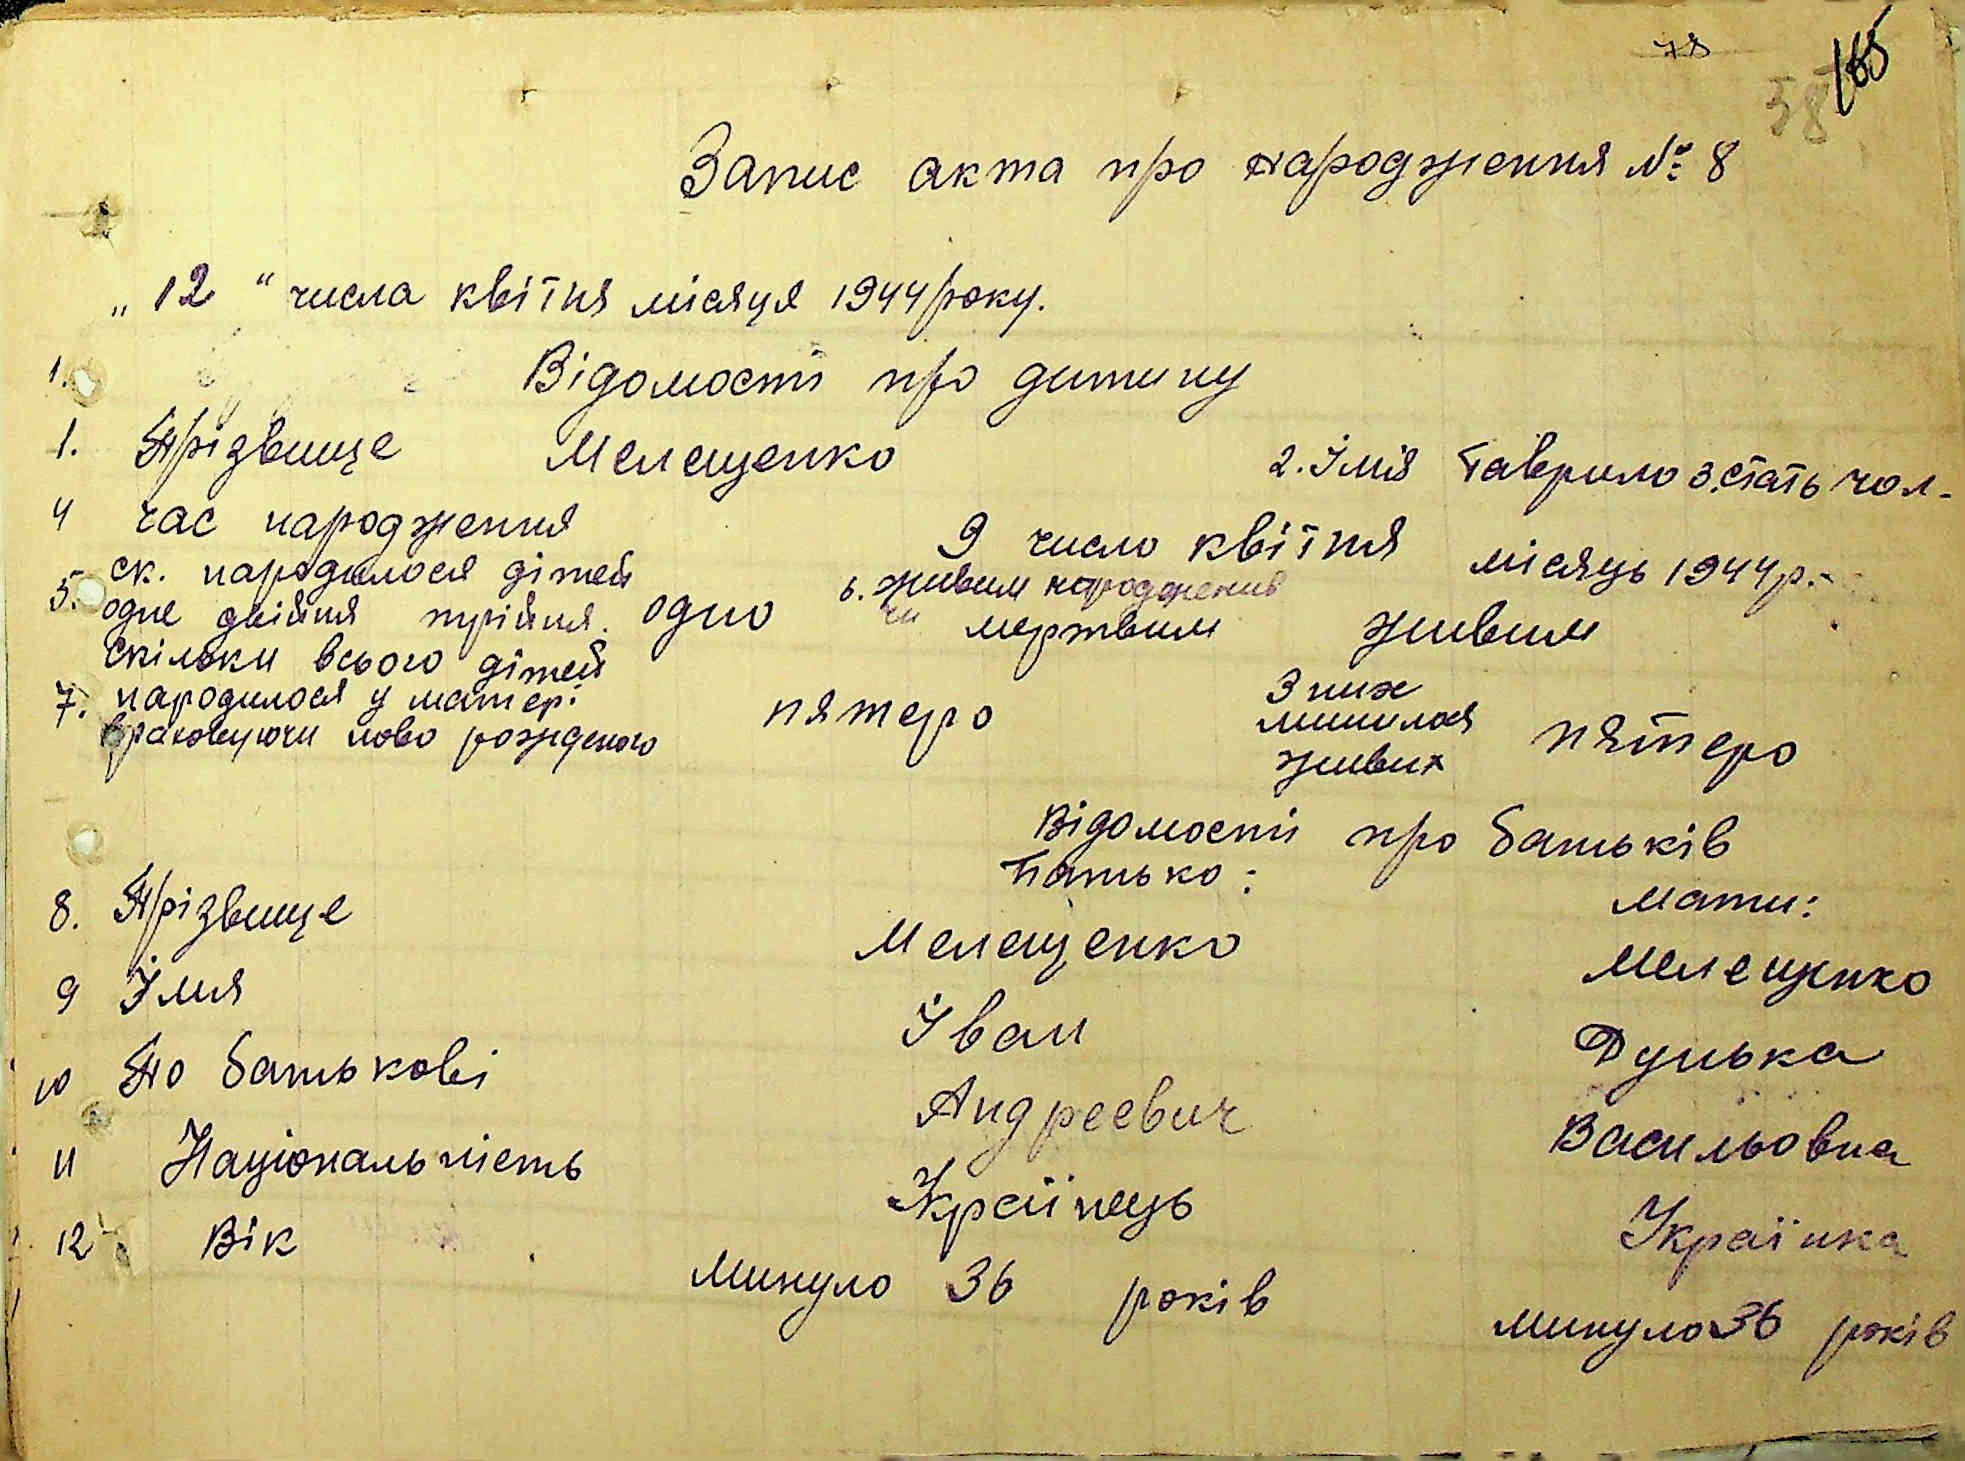 78
58
165
Запис акта про народження № 8
„ 12 " числа квітня місяця 1944 року.
1. Відомості про дитину
1. Прізвище Мелещенко 2. Імя Гаврило 3. стать чол.
4 час народження 9 число квітня місяць 1944 р.
5. ск. народилося дітей
одне двійня трійня. одно 6. живим народженив
чи мертвим живим
7. скільки всього дітей
народилося у матері
враховуючи ново рожденого пятеро З них
лишилося
живих пятеро
Відомості про батьків
Батько: мати:
8. Прізвище Мелещенко Мелещенко
9 Імя Іван Дунька
10 По батькові Андреевич Васильовна
11 Національність Українець Українка
12 Вік Минуло 36 років минуло 36 років